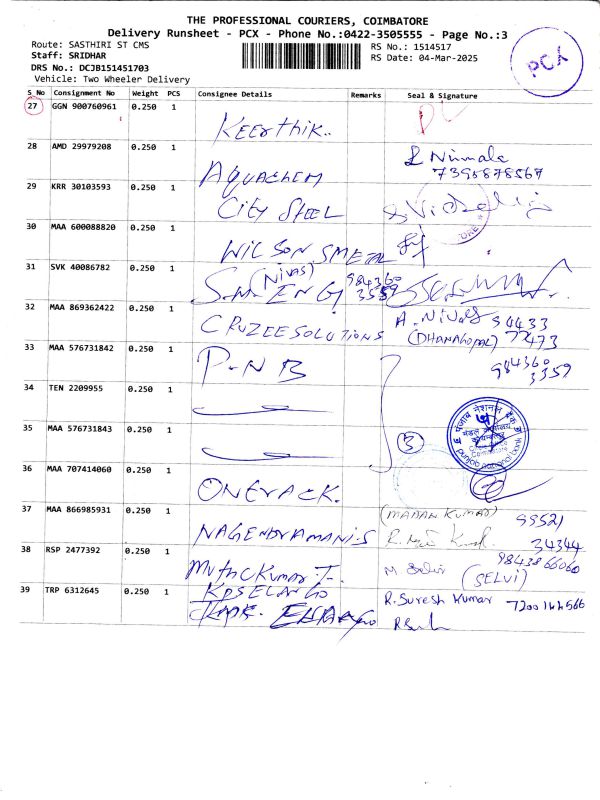 THE PROFESSIONAL COURIERS, COIMBATORE
Delivery Runsheet - PCX - Phone No.:0422-3505555 - Page No.:3
Route: SASTHIRI ST CMS
RS No.: 1514517
Staff: SRIDHAR
RS Date: 04-Mar-2025
DRS No.: DCJB151451703
Vehicle: Two Wheeler Delivery
PCX
S No Consignment No Weight PCS Consignee Details Remarks Seal & Signature
27 GGN 900760961 0.250 1 Keerthik..
28 AMD 29979208 0.250 1 Aquachem Nirmala
7395878567
29 KRR 30103593 0.250 1 City Steel
30 MAA 600088820 0.250 1 WILSON SMETAL
31 SVK 40086782 0.250 1 S.M. ENG (Nivas) 984360
3359
32 MAA 869362422 0.250 1 CRUZEE SOLUTIONS A. Nivas 94433
(DHANAGOPAL) 77473
33 MAA 576731842 0.250 1 P-N B 984360
3359
34 TEN 2209955 0.250 1
35 MAA 576731843 0.250 1 3
पंजाब नैशनल बैंक
punjab national bank
36 MAA 707414060 0.250 1 ONERACK.
37 MAA 866985931 0.250 1 NAGENDRAMANI-S (MADAN KUMAR) 99521
34344
38 RSP 2477392 0.250 1 Muthukumar T- M Selvi (SELVI) 9843866060
39 TRP 6312645 0.250 1 KPS ELANGO R.Suresh Kumar 7200144566